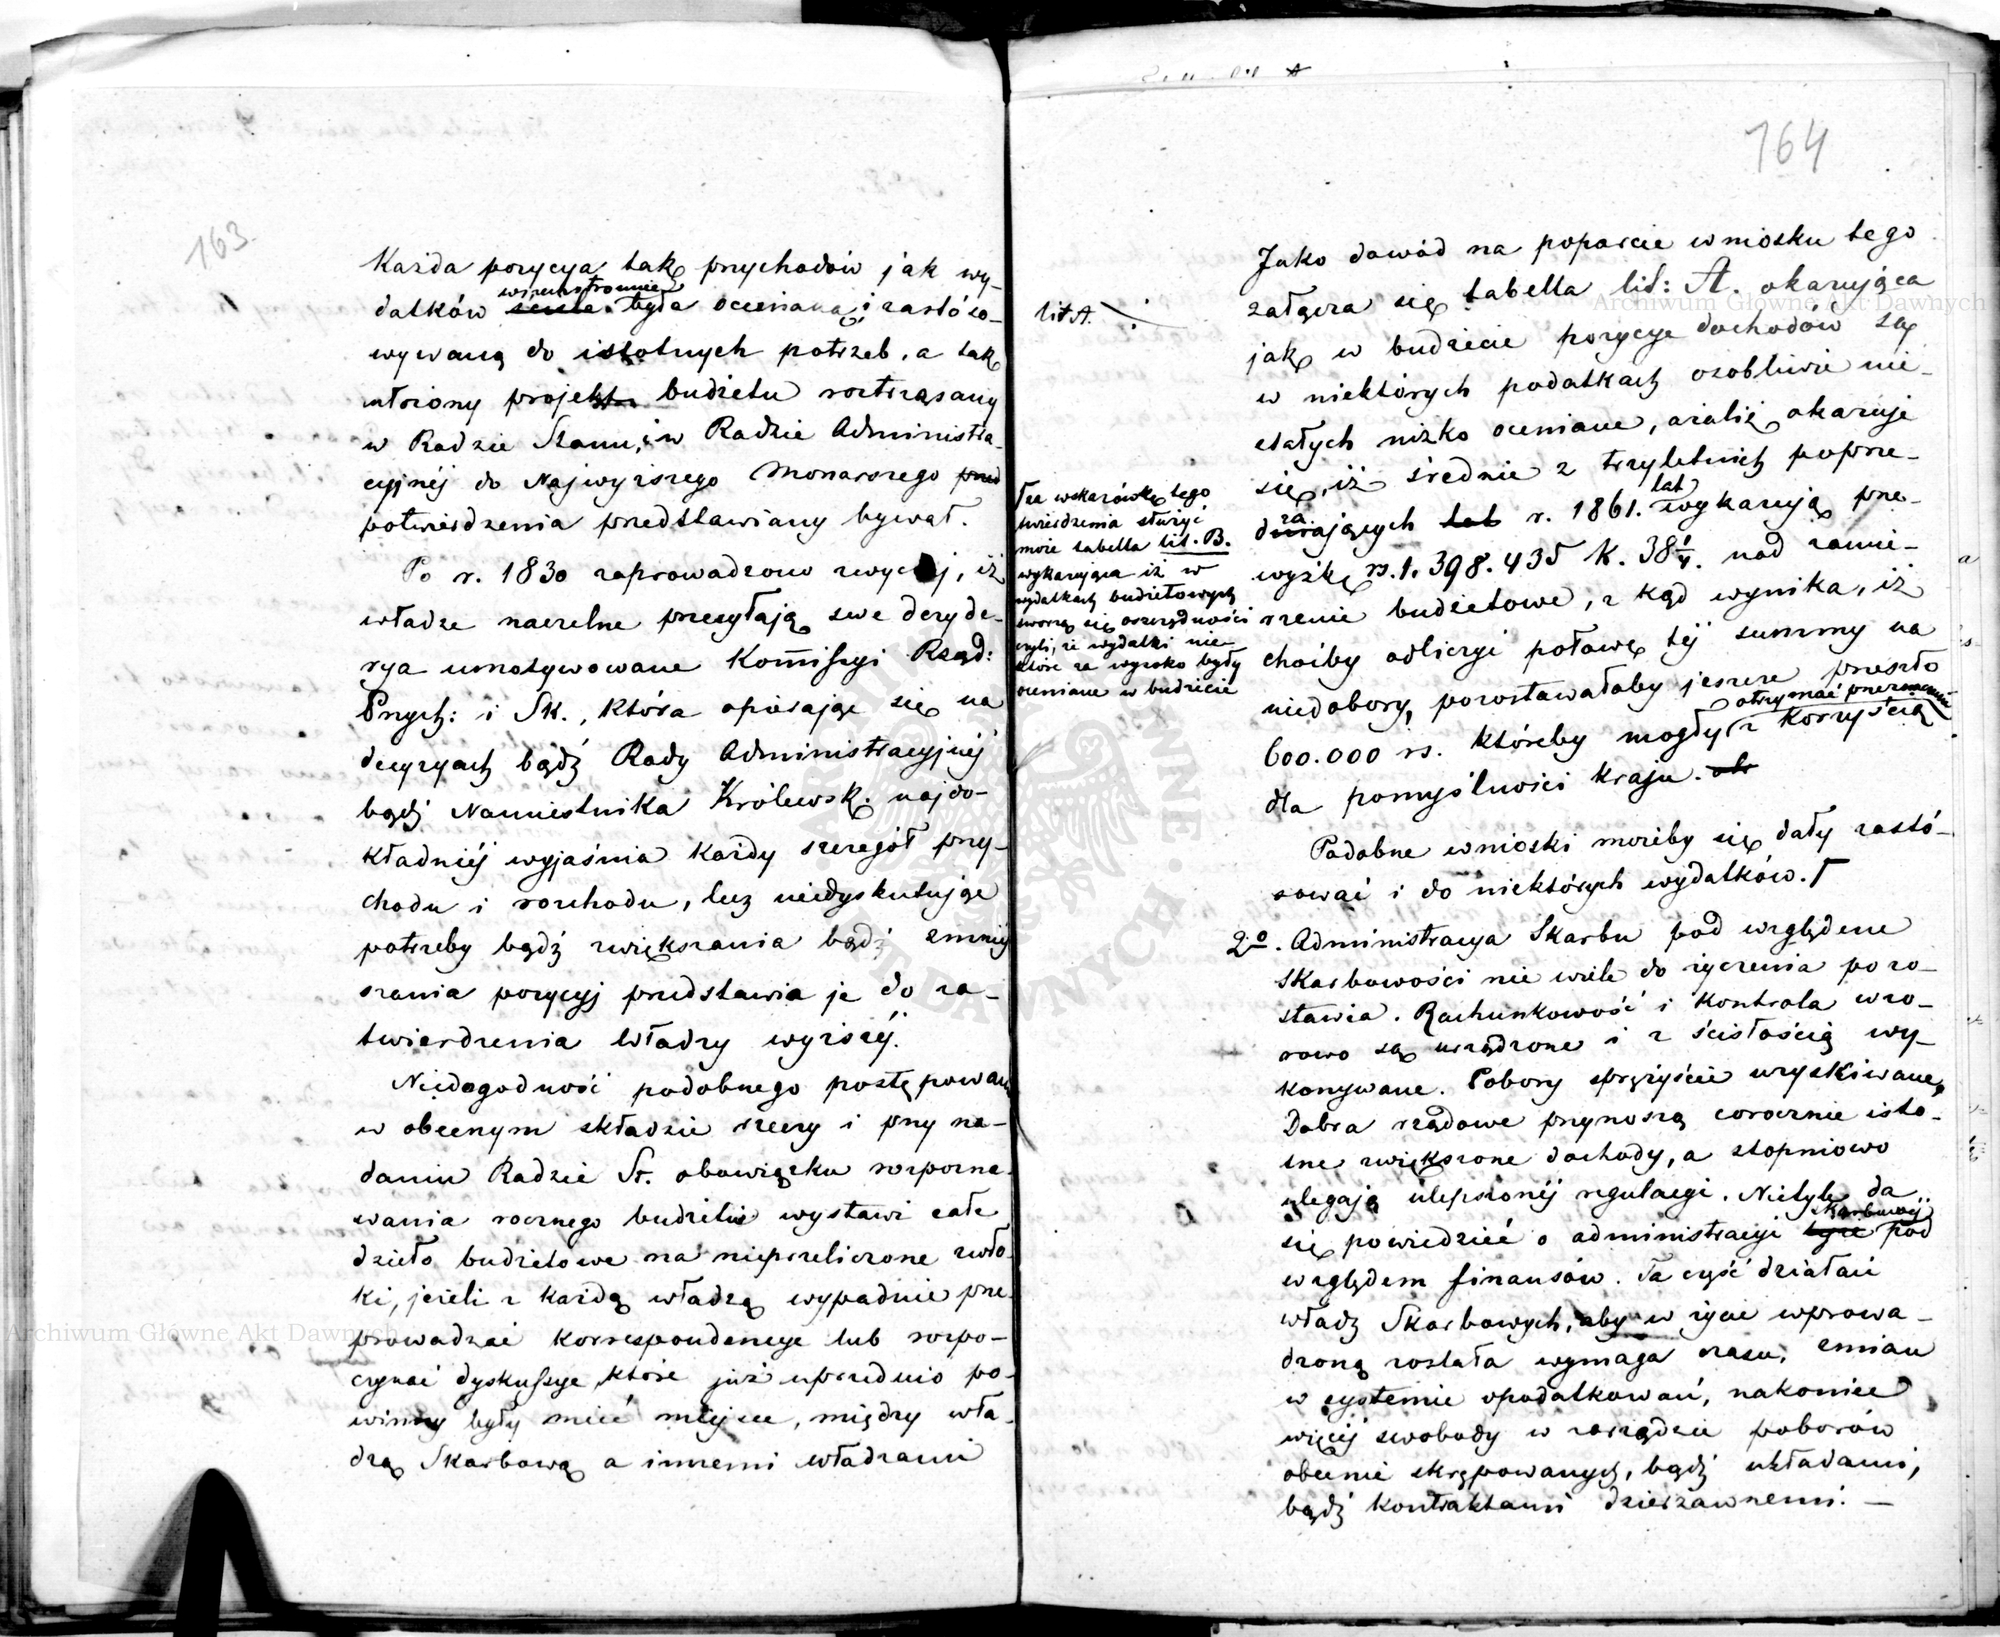 163
Każda pozycya tak przychodów jak wy-
wszechstronnie
datków ściśle była oceniana i zastóso-
wywaną do istotnych potrzeb, a tak
ułożony projekt budżetu roztrząsany
w Radzie Stanu, i w Radzie Administra-
cyjnéj do Najwyższego Monarszego przed
potwierdzenia przedstawiany bywał.
Po r. 1830 zaprowadzono zwyczaj, iż
władze naczelne przesyłają swe dezyde-
rya umotywowane Kommissyi Rząd:
Pnych: i Sk., która opierając się na
decyzyach bądź Rady Administracyjnéj
bądź Namiestnika Królewsk. najdo-
kładniéj wyjaśnia każdy szczegół przy-
chodu i rozchodu, lecz niedyskutując
potrzeby bądź zwiększania bądź zmniej
szania pozycyj przedstawia je do za-
twierdzenia Władzy wyższéj.
Niedogodność podobnego postępowania
w obecnym składzie rzeczy i przy na-
daniu Radzie St. obowiązku rozpozna-
wania rocznego budżetu wystawi całe
dzieło budżetowe na nieprzeliczone zwło-
ki, jeżeli z każdą władzą wypadnie prze-
prowadzać korrespondencye lub rozpo-
czynać dyskussye, które już uprzednio po-
winny były mieć miejsce, między wła-
dzą Skarbową a innemi władzami
164
Jako dowód na poparcie wniosku tego
lit A.
załącza się tabella lit: A. okazująca
jak w budżecie pozycye dochodów są
w niektórych podatkach osobliwie nie-
stałych nizko oceniane, aż aliż okazuje
się, iż średnie z trzyletnich poprze-
lat
za
dzających lat r. 1861. wykazują prze-
wyżkę rs. 1,398.435 k. 38¼. nad zamie-
rzenie budżetowe, z kąd wynika, iż
choćby odliczyć połowę téj summy na
niedobory, pozostawałoby jeszcze przeszło
otrzymać przeznaczenie
600.000 rs. któreby mogły z korzyścią
dla pomyślności kraju.
Podobne wnioski możeby się dały zastó-
sować i do niektórych wydatków. Γ
Γ za wskazówkę tego
twierdzenia służyć
może tabella lit. B.
wykazująca iż w
wydatkach budżetowych
tworzą się oszczędności
czyli, że wydatki nie-
które za wysoko były
oceniane w budżecie
2º. Administracya Skarbu pod względem
Skarbowości nie wiele do życzenia pozo-
stawia. Rachunkowość i Kontrola wzo-
rowo są urządzone i z ścisłością wy-
konywane. Pobory sprężyście uzyskiwane,
Dobra rządowe przynoszą corocznie isto-
tne zwiększone dochody, a stopniowo
ulegają ulepszonéj regulacyi. Nietyle da
skarbowéj
się powiedzieć o administracyi tyle pod
względem finansów. Ta część działań
władz Skarbowych, aby w życie wprowa-
dzoną została wymaga czasu, zmian
w systemie opodatkowań, nakoniec
więcéj swobody w zarządzie poborów
obecnie skrępowanych, bądź układami,
bądź kontraktami dzierżawnemi. —
Archiwum Główne Akt Dawnych
Archiwum Główne Akt Dawnych